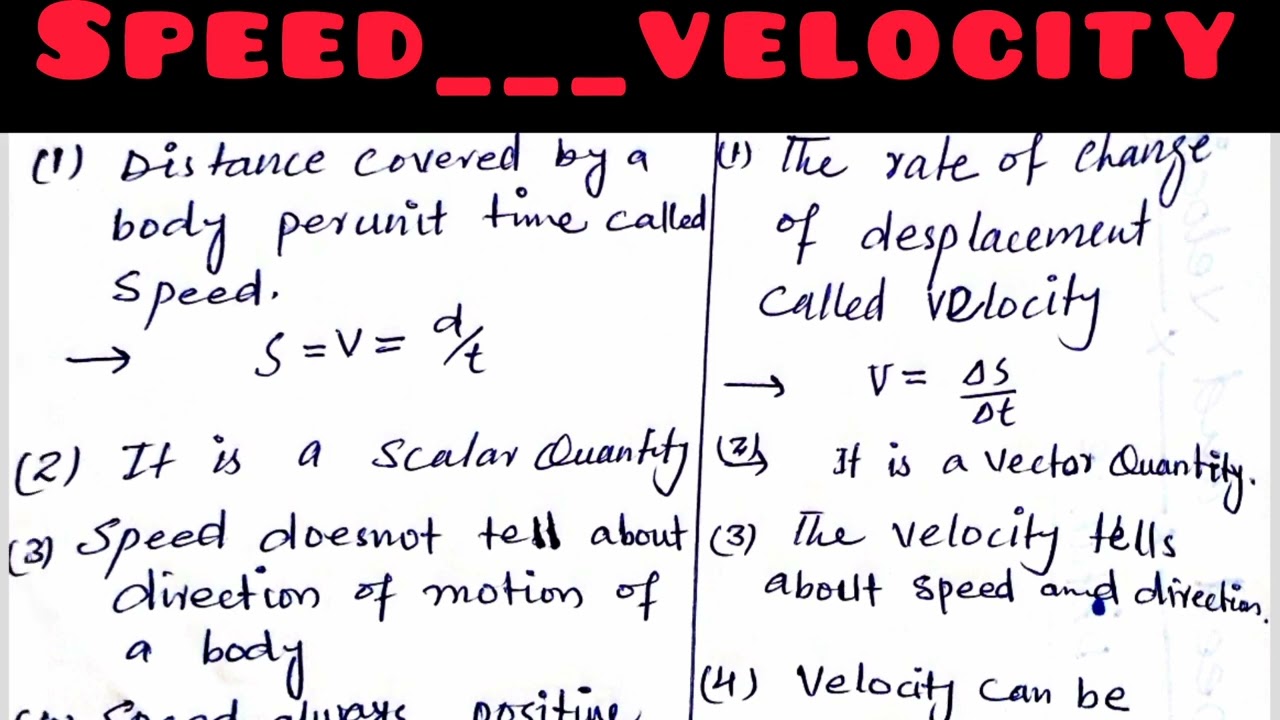 SPEED___VELOCITY
(1) Distance covered by a
body perunit time called
Speed.
→ S = V = d/t
(2) It is a scalar Quantity
(3) Speed doesnot tell about
direction of motion of
a body
Speed always positive
(1) The rate of change
of desplacement
called velocity
→ V = ΔS/Δt
(2) It is a vector Quantity.
(3) The velocity tells
about speed and direction.
(4) Velocity can be